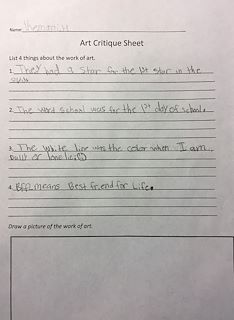 Name
Art Critique Sheet
List 4 things about the work of art.
1. They had a star for the 1st star in the
2. The word school was for the 1st day of school.
3. The white line was the color when I am
or
4. BFF means Best friend for Life.
Draw a picture of the work of art.